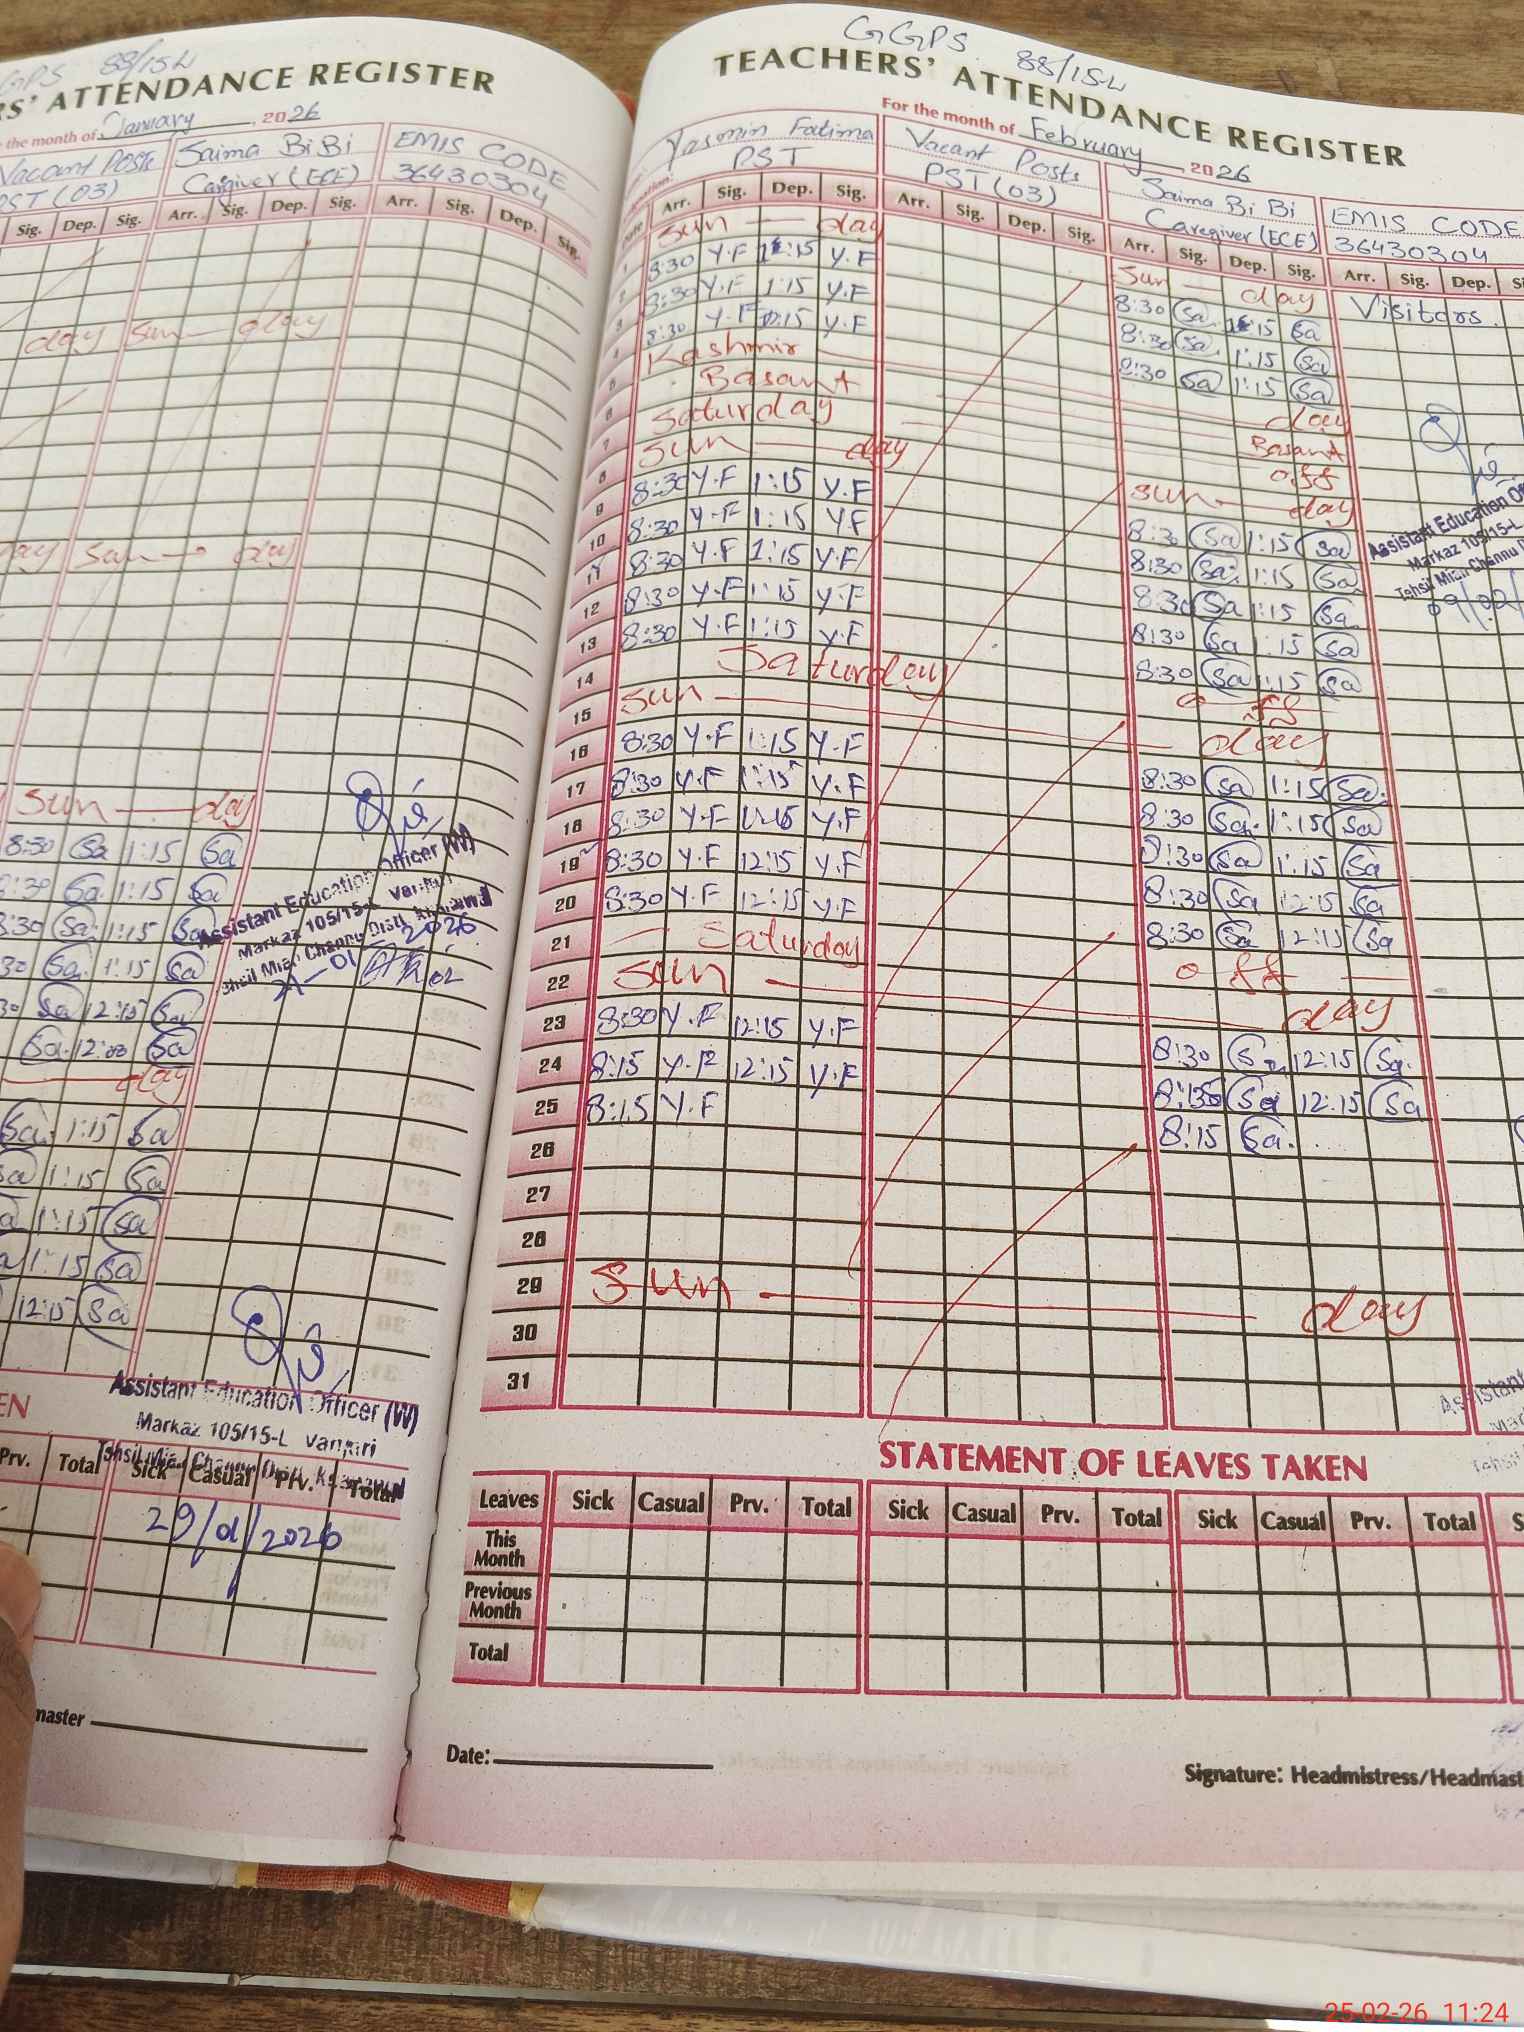 GPS 88/15-L
RS' ATTENDANCE REGISTER
the month of January, 2026
Vacant Posts
PST (03)
Saima BiBi
Caregiver (ECE)
EMIS CODE
36430304
Sig. Dep. Sig. Arr. Sig. Dep. Sig. Arr. Sig. Dep. Sig.
day Sun — day
day Sun — day
Sun — day
8:30 Sa 1:15 Sa
8:30 Sa. 1:15 Sa
8:30 Sa. 1:15 Sa
30 Sa. 1:15 Sa
30 Sa 12:15 Sa
Sa. 12:00 Sa
day
Sa. 1:15 Sa
Sa 1:15 Sa
a 1:15 Sa
a 1:15 Sa
12:15 Sa
Assistant Education Officer (W)
Markaz 105/15-L Vanjari
Tehsil Mian Channu Distt.
21-01 2026
Assistant Education Officer (W)
Markaz 105/15-L Vanjari
EN
Prv. Total Sick Casual Prv. Total
29/01/2026
master
GGPS 88/15-L
TEACHERS' ATTENDANCE REGISTER
For the month of February 2026
Yasmin Fatima
PST
Vacant Posts
PST (03)
Saima Bi Bi
Caregiver (ECE)
EMIS CODE
36430304
Date Arr. Sig. Dep. Sig. Arr. Sig. Dep. Sig. Arr. Sig. Dep. Sig. Arr. Sig. Dep. Si
1 Sun — day Sun — day Visitors
2 8:30 Y.F 1:15 Y.F 8:30 Sa. 1:15 Sa
3 8:30 Y.F 1:15 Y.F 8:30 Sa. 1:15 Sa
4 8:30 Y.F 1:15 Y.F 8:30 Sa 1:15 Sa
5 Kashmir day
6 Basant Basant
7 Saturday off
8 Sun — day Sun — day
9 8:30 Y.F 1:15 Y.F 8:30 Sa 1:15 Sa
10 8:30 Y.F 1:15 Y.F 8:30 Sa. 1:15 Sa
11 8:30 Y.F 1:15 Y.F 8:30 Sa 1:15 Sa.
12 8:30 Y.F 1:15 Y.F 8:30 Sa 1:15 Sa
13 8:30 Y.F 1:15 Y.F 8:30 Sa 1:15 Sa
14 Saturday off
15 Sun — day
16 8:30 Y.F 1:15 Y.F 8:30 Sa 1:15 Sa.
17 8:30 Y.F 1:15 Y.F 8:30 Sa. 1:15 Sa
18 8:30 Y.F 1:15 Y.F 8:30 Sa 1:15 Sa
19 8:30 Y.F 12:15 Y.F 8:30 Sa 12:15 Sa
20 8:30 Y.F 12:15 Y.F 8:30 Sa 12:15 Sa
21 — Saturday off —
22 Sun — day
23 8:30 Y.F 12:15 Y.F 8:30 Sa 12:15 Sa.
24 8:15 Y.F 12:15 Y.F 8:15 Sa 12:15 Sa
25 8:15 Y.F 8:15 Sa.
26
27
28
29 Sun — day
30
31
Assistant Education
Markaz 105/15-L
Tehsil Mian Channu
09/02/
Assistant
STATEMENT OF LEAVES TAKEN
Leaves Sick Casual Prv. Total Sick Casual Prv. Total Sick Casual Prv. Total S
This Month
Previous Month
Total
Date:
Signature: Headmistress/Headmast
25-02-26 11:24